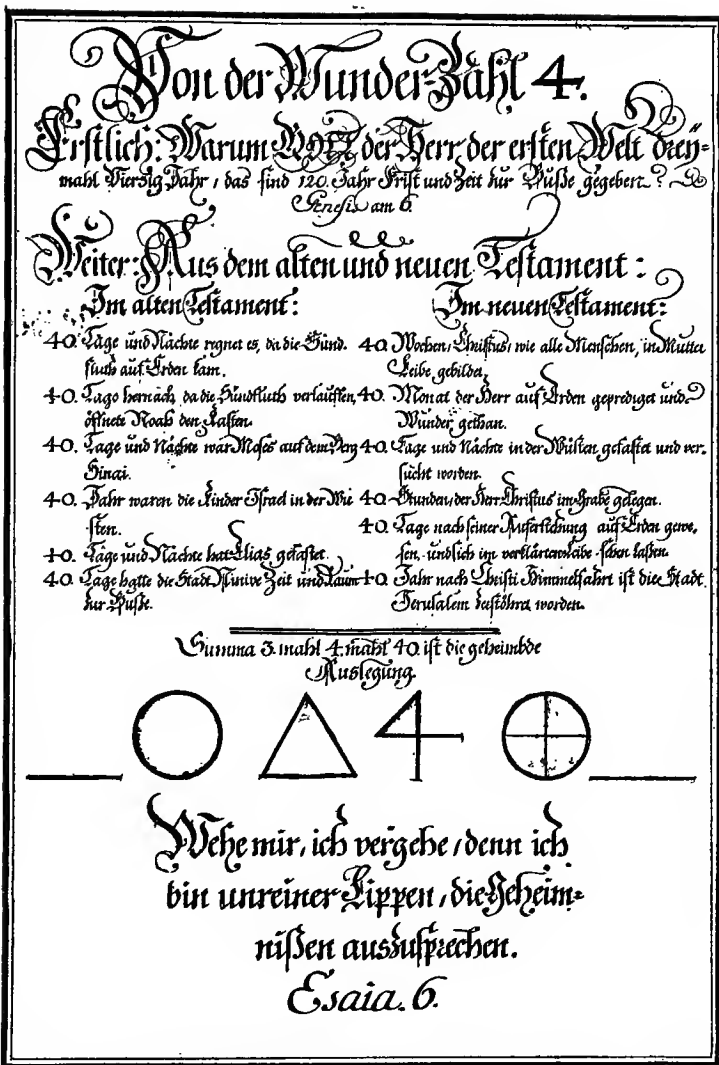 Von der Wunder-Zahl 4.
Erstlich: Warum GOTT der Herr der ersten Welt drey-
mahl Viersig Jahr, das sind 120. Jahr Frist und Zeit zur Buße gegeben?
Genesis am 6.
Weiter: Aus dem alten und neuen Testament:
Im alten Testament:
40. Tage und Nächte regnet es, da die Sünd-
fluth auf Erden kam.
40. Tage hernach, da die Sündfluth verlauffen,
öffnete Noah den Kasten.
40. Tage und Nächte war Moses auf dem Berg
Sinai.
40. Jahr waren die Kinder Israel in der Wü
sten.
40. Tage und Nächte hat Elias gefastet.
40. Tage hatte die Stadt Ninive Zeit und Raum
zur Buße.
Im neuen Testament:
40. Wochen, Christus, wie alle Menschen, in Mutter
Leibe gebildet,
40. Monat der Herr auf Erden geprediget und
Wunder gethan.
40. Tage und Nächte in der Wüsten gefastet und ver-
sucht worden.
40. Stunden, der Herr Christus im Grabe gelegen.
40. Tage nach seiner Auferstehung auf Erden gewe-
sen, und sich im verklärten Leibe sehen lassen.
40. Jahr nach Christi Himmelfahrt ist die Stadt
Jerusalem zerstöhret worden.
Summa 3. mahl 4. mahl 40. ist die geheimbde
Auslegung.
4
Wehe mir, ich vergehe, denn ich
bin unreiner Lippen, die Geheim-
nißen auszusprechen.
Esaia. 6.